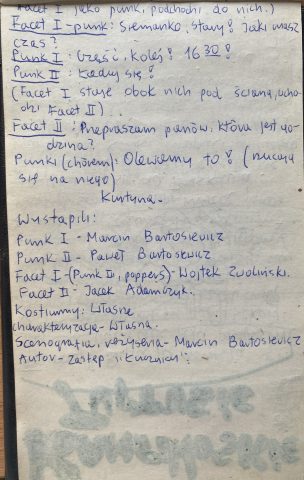 Facet I jako punk, podchodzi do nich.)
Facet I-punk: Siemanko, stary! Jaki masz
czas?
Punk I: Cześć, koleś! 16 30!
Punk II: Kiedy się!
(Facet I staje obok nich pod ścianą, ucho-
dzi Facet II)..
Facet II: Przepraszam panów, która jest go-
dzina?
Punki (chórem): Olewamy to! (rzucają
się na niego)
Kurtyna.
Wystąpili:
Punk I - Marcin Bartosiewicz
Punk II - Paweł Bartosewicz
Facet I-(Punk III, poppers)-Wojtek Zwoliński.
Facet II - Jacek Adamczyk.
Kostiumy: Własne
charakteryzacja - Własna.
Scenografia, reżyseria - Marcin Bartosiewicz
Autor - zastęp